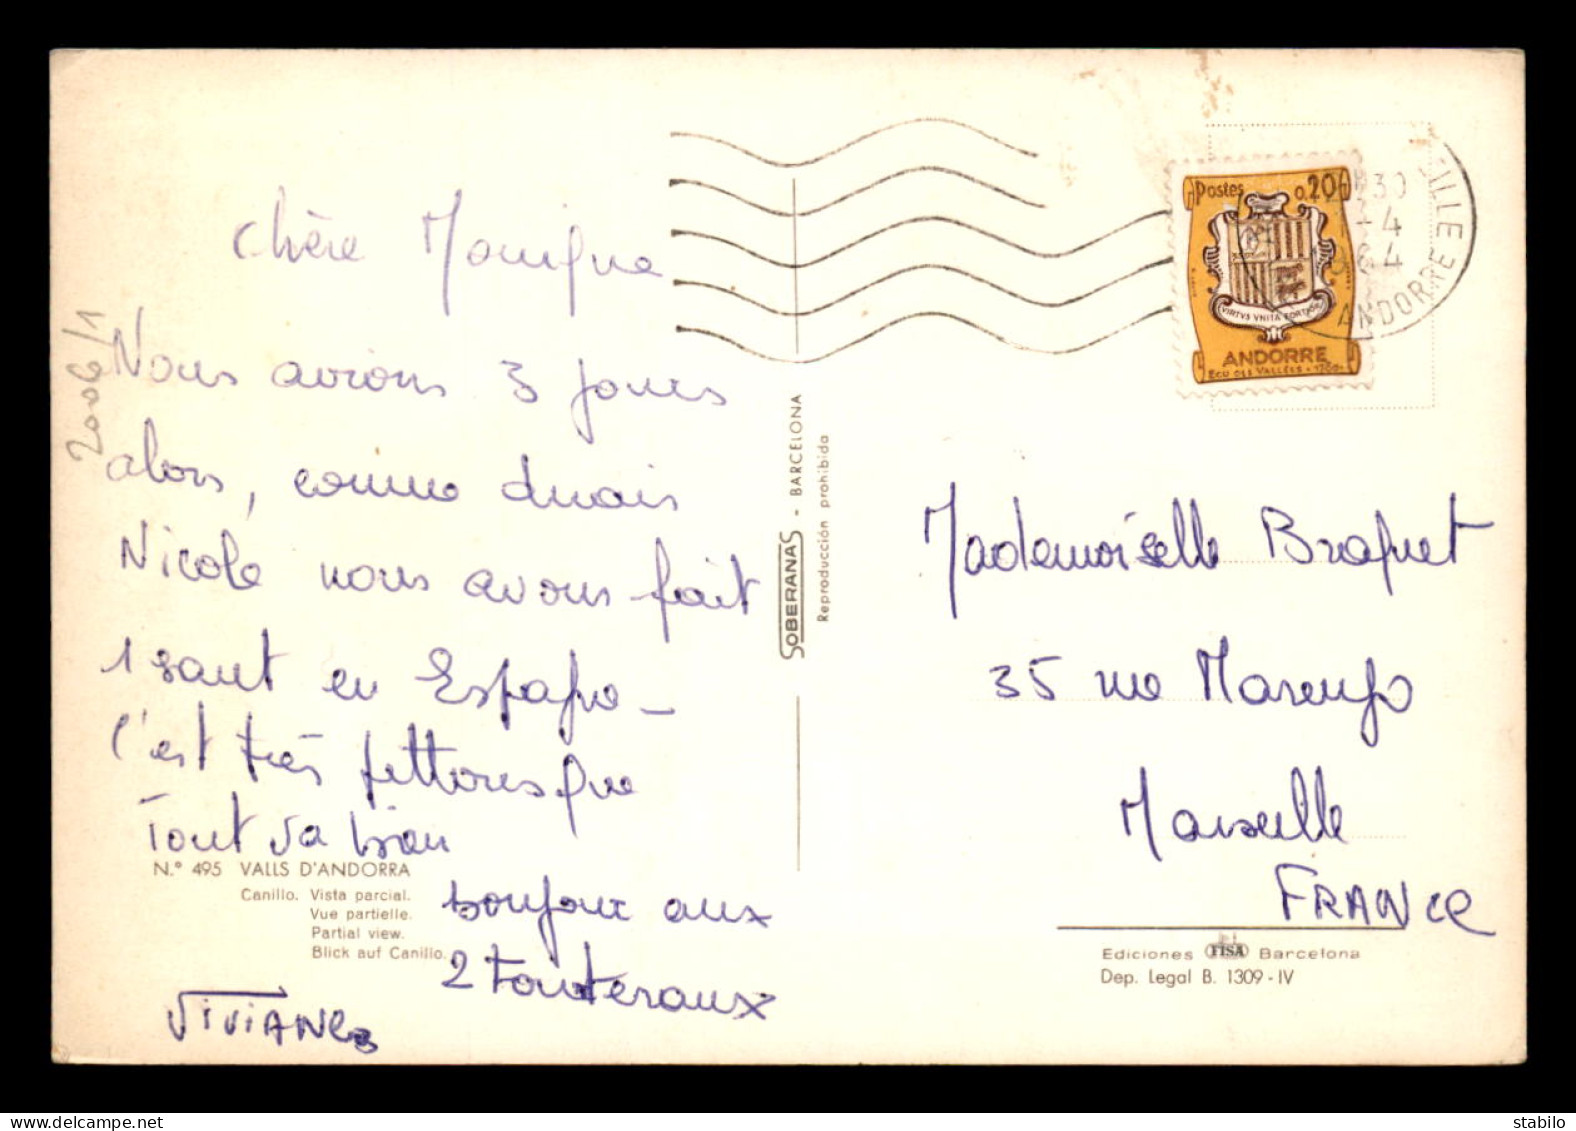 chère Monique
Nous avions 3 jours
alors, comme
Nicole nous avons fait
1 saut en Espagne -
c'est très pittoresque
Tout va bien
bonjour aux
2
VIVIANE
2006/1
N.º 495 VALLS D'ANDORRA
Canillo. Vista parcial.
Vue partielle.
Partial view.
Blick auf Canillo.
SOBERANAS - BARCELONA
Reproducción prohibida
Postes 0,20
VIRTVS VNITA FORTIOR
ANDORRE
ECU DES VALLÉES
30
4
64
ANDORRE
Mademoiselle Braquet
35 rue Marengo
Marseille
FRANCE
Ediciones FISA Barcelona
Dep. Legal B. 1309-IV
stabilo